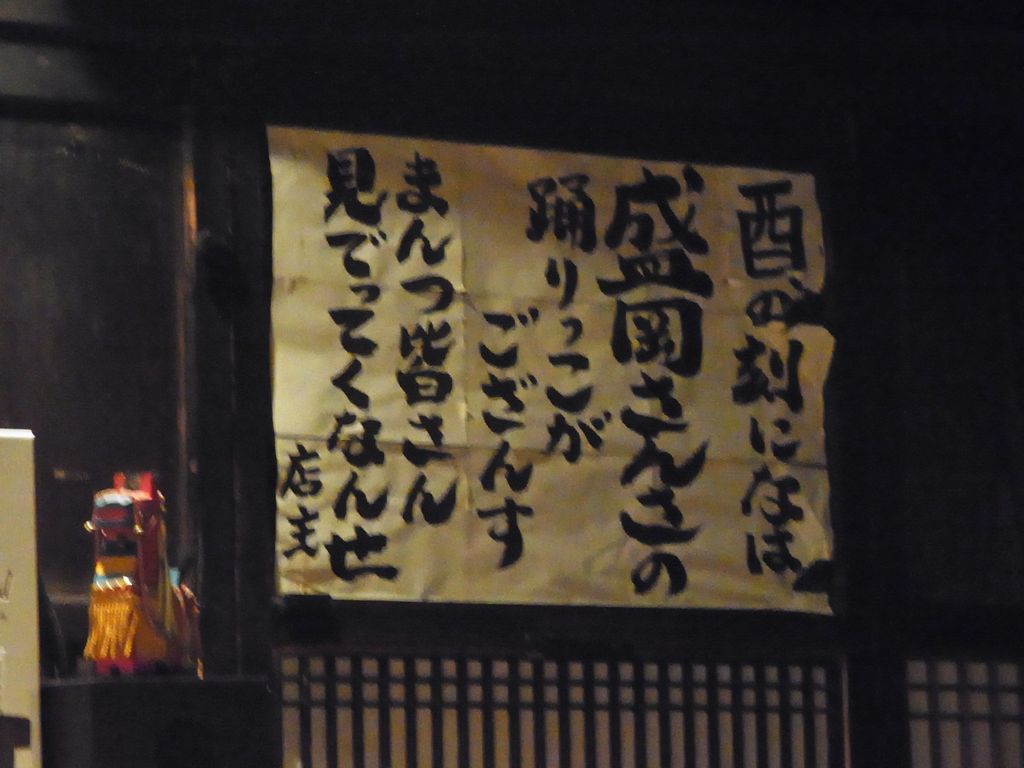 酉の刻になは
盛岡さんさの
踊りっこが
ござんす
まんつ皆さん
見でってくなんせ
店主